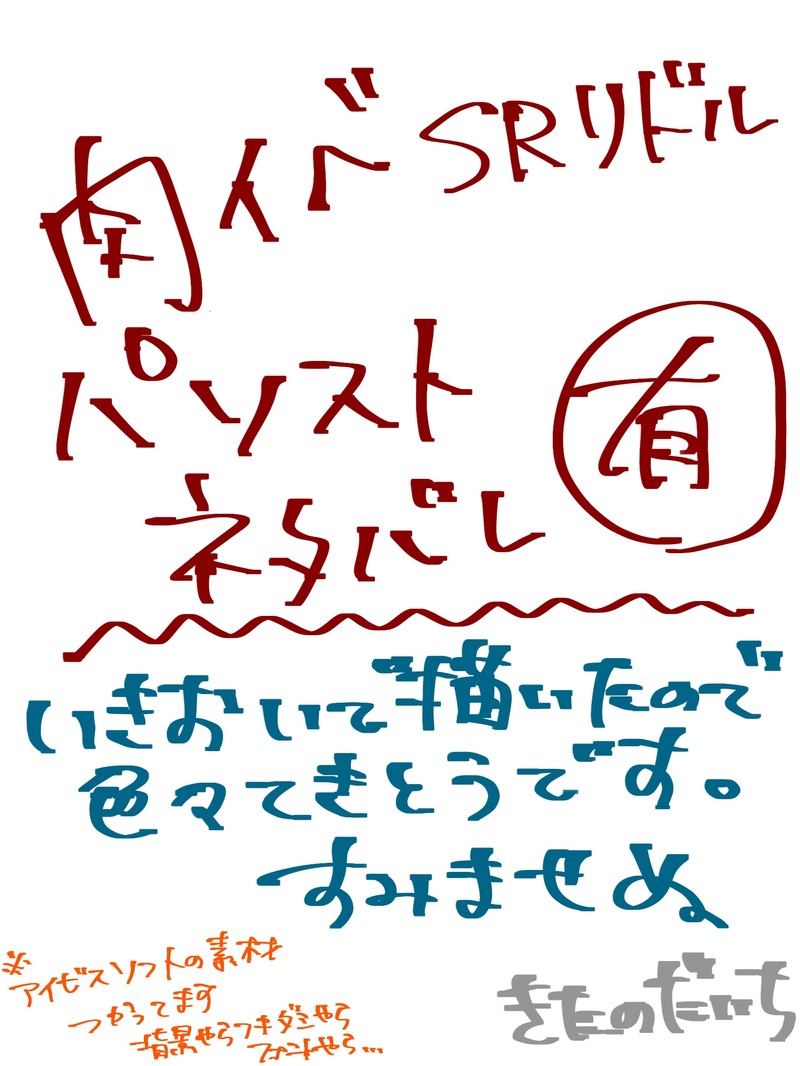 肉イベ SRリドル
パソスト
ネタバレ
有
いきおいで描いたので
色々てきとうです。
すみませぬ
※
アイビスソフトの素材
つかってます
背景やらフキダシやら
フォントやら…
きたのだいち